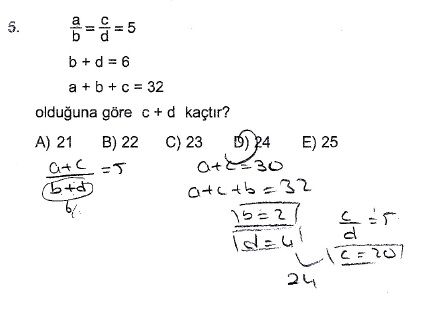 5. a/b = c/d = 5
b + d = 6
a + b + c = 32
olduğuna göre c + d kaçtır?
A) 21 B) 22 C) 23 D) 24 E) 25
a+c/b+d = 5
6
a+c=30
a+c+b=32
b=2
d=4
c/d = 5
c=20
24